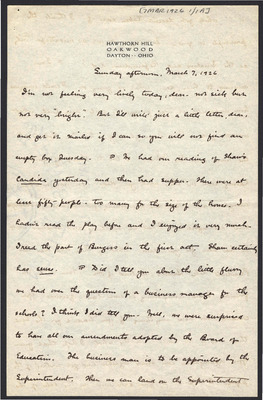 [7 MAR 1926 1/1A]
HAWTHORN HILL
OAKWOOD
DAYTON · OHIO
Sunday afternoon. March 7, 1926
I'm not feeling very lively today, dear. not sick but
not very "bright." But I'll write just a little letter, dear,
and get it mailed if I can so you will not find an
empty box Tuesday. We had our reading of Shaw's
Candida yesterday and then had supper. There were at
least fifty people - too many for the size of the house. I
hadn't read the play before and I enjoyed it very much.
I read the part of Burgess in the first act. Shaw certainly
has sense. Did I tell you about the little flurry
we had over the question of a business manager for the
schools? I think I did tell you. Well, we were surprised
to have all our amendments adopted by the Board of
Education. The business man is to be appointed by the
Superintendent. Then we can land on the Superintendent